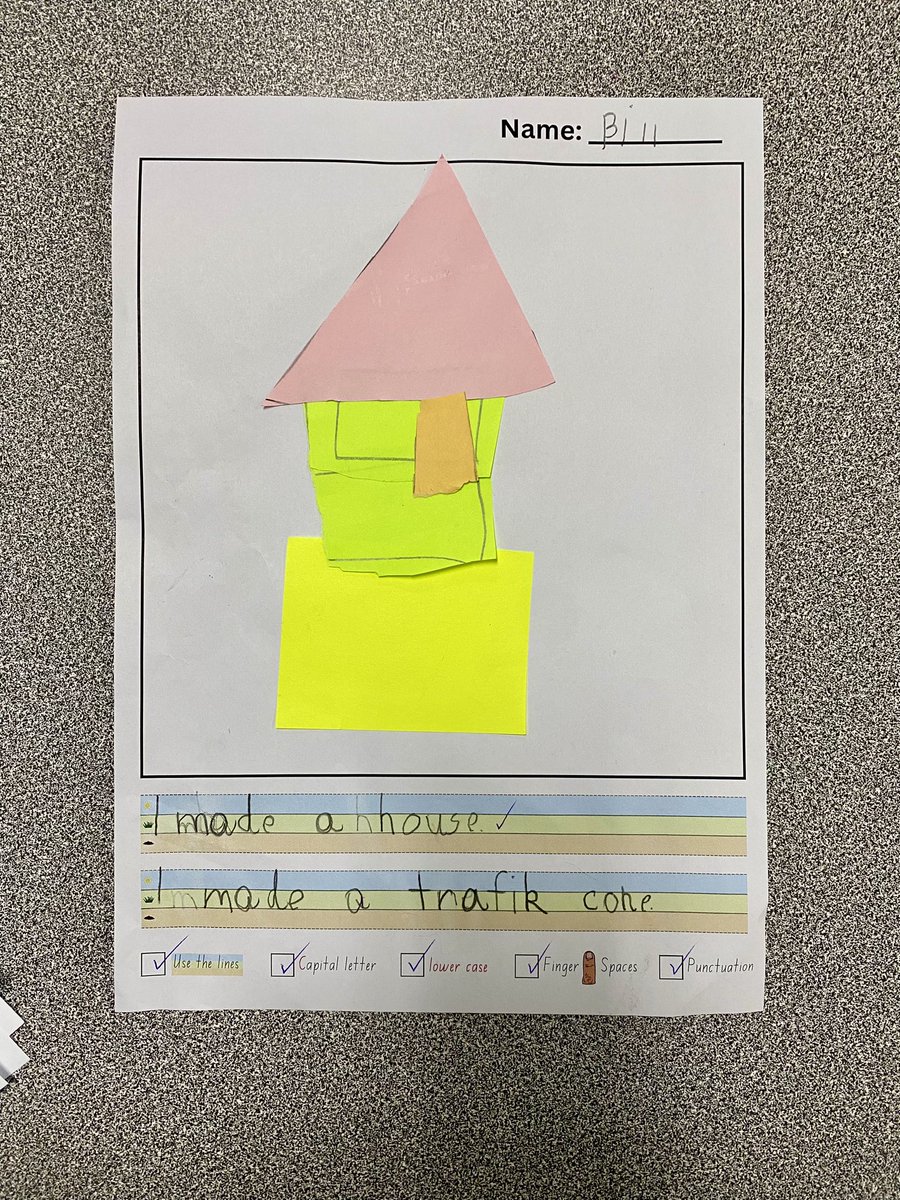 Name: Bill
I made a house.
I made a trafik cone.
Use the lines Capital letter lower case Finger Spaces Punctuation